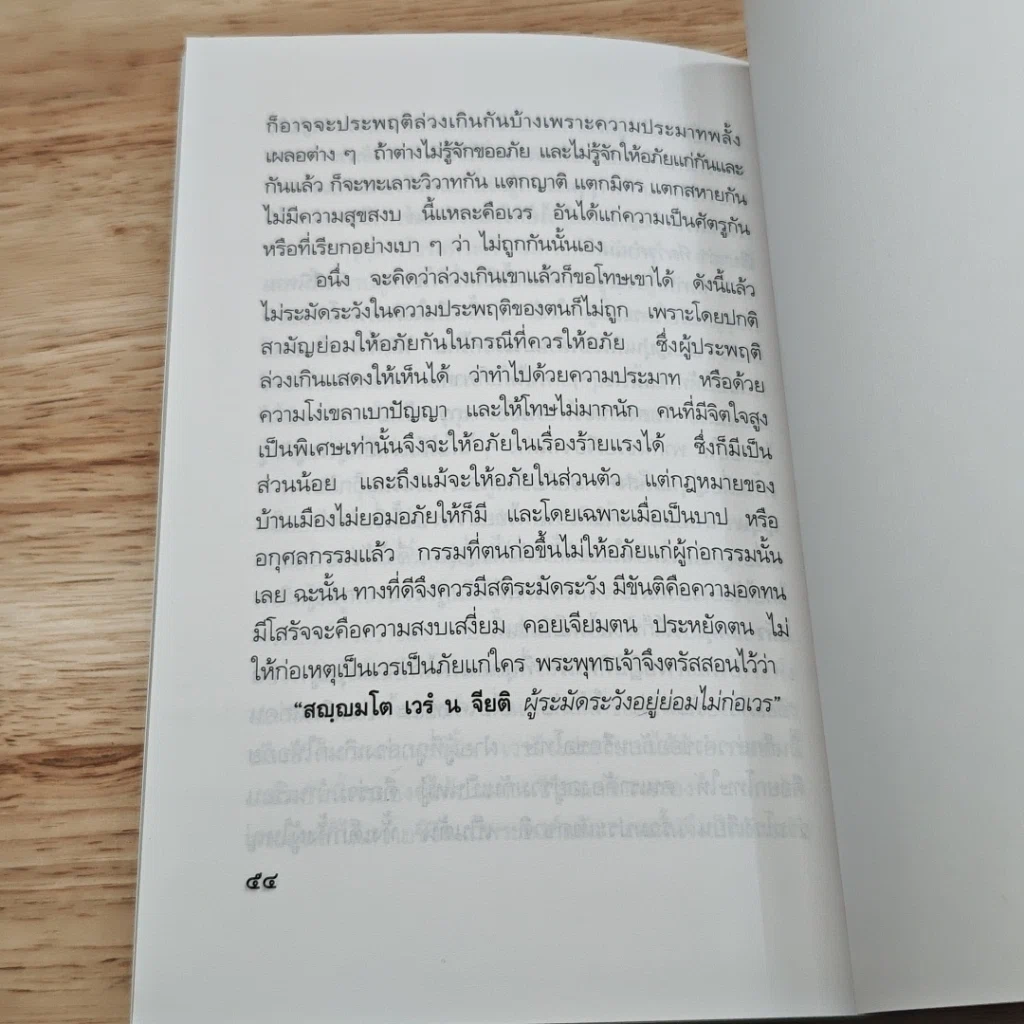 ก็อาจจะประพฤติล่วงเกินกันบ้างเพราะความประมาทพลั้ง
เผลอต่าง ๆ ถ้าต่างไม่รู้จักขออภัย และไม่รู้จักให้อภัยแก่กันและ
กันแล้ว ก็จะทะเลาะวิวาทกัน แตกญาติ แตกมิตร แตกสหายกัน
ไม่มีความสุขสงบ นี้แหละคือเวร อันได้แก่ความเป็นศัตรูกัน
หรือที่เรียกอย่างเบา ๆ ว่า ไม่ถูกกันนั้นเอง
อนึ่ง จะคิดว่าล่วงเกินเขาแล้วก็ขอโทษเขาได้ ดังนี้แล้ว
ไม่ระมัดระวังในความประพฤติของตนก็ไม่ถูก เพราะโดยปกติ
สามัญย่อมให้อภัยกันในกรณีที่ควรให้อภัย ซึ่งผู้ประพฤติ
ล่วงเกินแสดงให้เห็นได้ ว่าทำไปด้วยความประมาท หรือด้วย
ความโง่เขลาเบาปัญญา และให้โทษไม่มากนัก คนที่มีจิตใจสูง
เป็นพิเศษเท่านั้นจึงจะให้อภัยในเรื่องร้ายแรงได้ ซึ่งก็มีเป็น
ส่วนน้อย และถึงแม้จะให้อภัยในส่วนตัว แต่กฎหมายของ
บ้านเมืองไม่ยอมอภัยให้ก็มี และโดยเฉพาะเมื่อเป็นบาป หรือ
อกุศลกรรมแล้ว กรรมที่ตนก่อขึ้นไม่ให้อภัยแก่ผู้ก่อกรรมนั้น
เลย ฉะนั้น ทางที่ดีจึงควรมีสติระมัดระวัง มีขันติคือความอดทน
มีโสรัจจะคือความสงบเสงี่ยม คอยเจียมตน ประหยัดตน ไม่
ให้ก่อเหตุเป็นเวรเป็นภัยแก่ใคร พระพุทธเจ้าจึงตรัสสอนไว้ว่า
“สญฺญมโต เวรํ น จียติ ผู้ระมัดระวังอยู่ย่อมไม่ก่อเวร”
๕๔